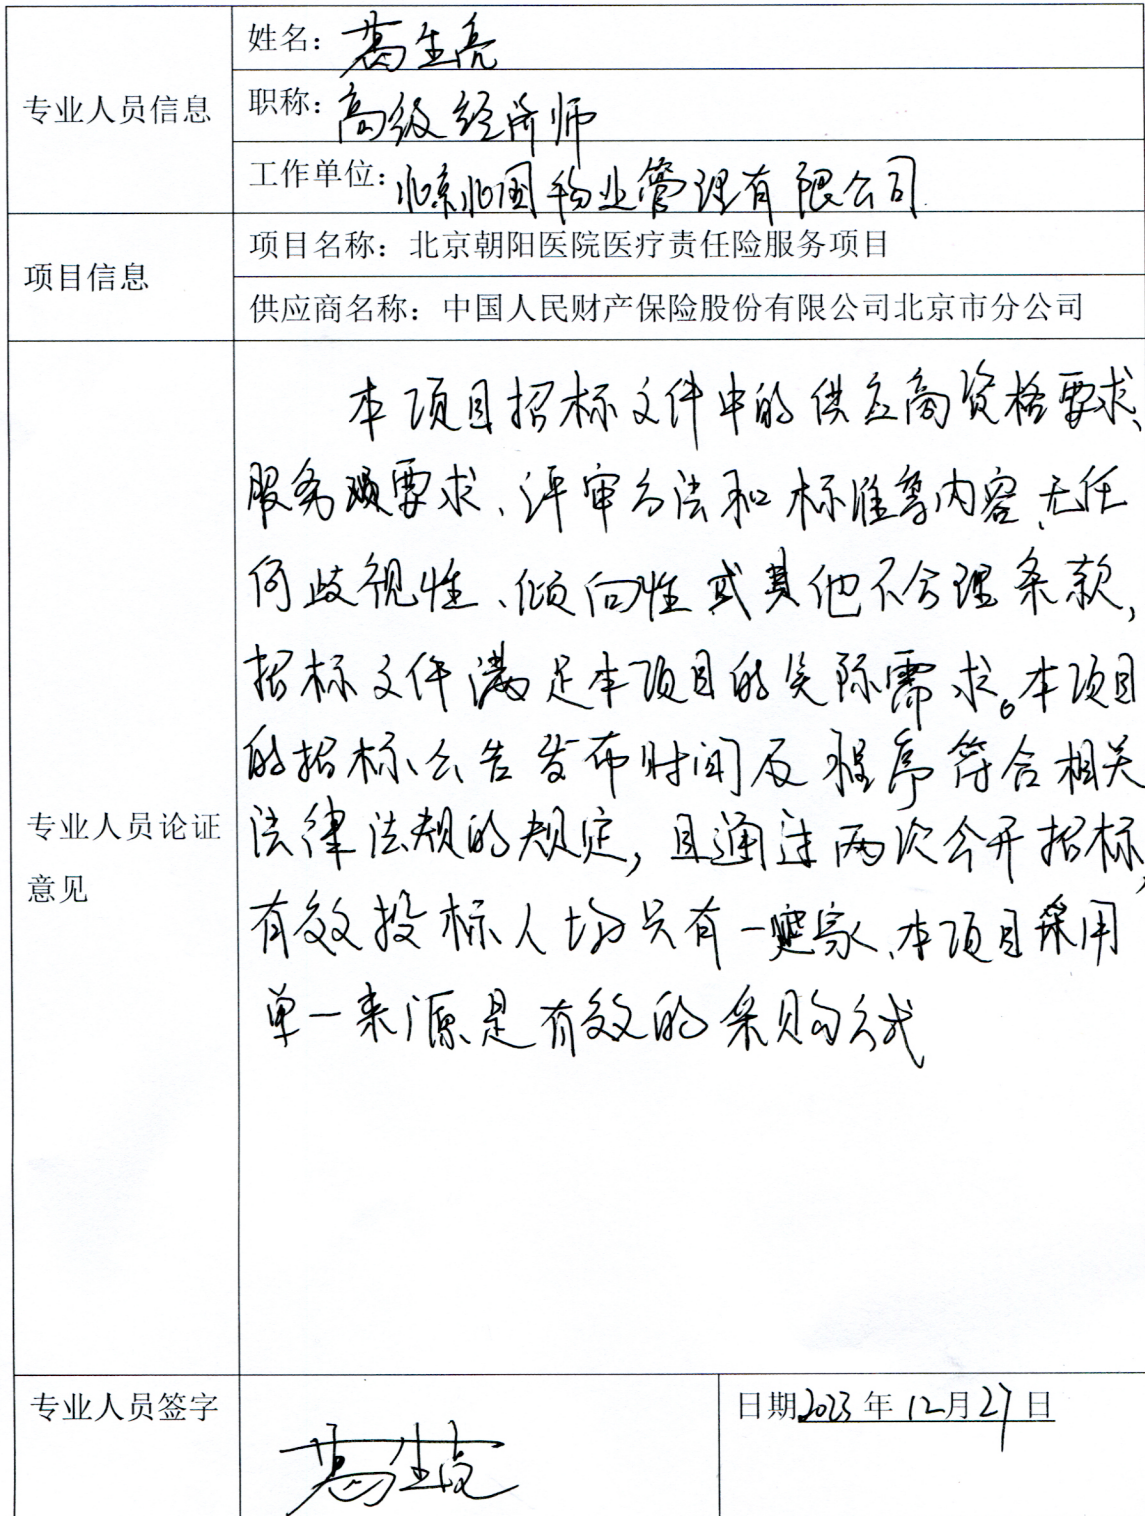 专业人员信息
姓名：葛生亮
职称：高级经济师
工作单位：北京北国物业管理有限公司
项目信息
项目名称：北京朝阳医院医疗责任险服务项目
供应商名称：中国人民财产保险股份有限公司北京市分公司
专业人员论证
意见
本项目招标文件中的供应商资格要求、
服务要求、评审办法和标准等内容、无任
何歧视性、倾向性或其他不合理条款，
招标文件满足本项目的实际需求。本项目
的招标公告发布时间及程序符合相关
法律法规的规定，且通过两次公开招标，
有效投标人均只有一家、本项目采用
单一来源是有效的采购方式
专业人员签字
葛生亮
日期2023年12月27日